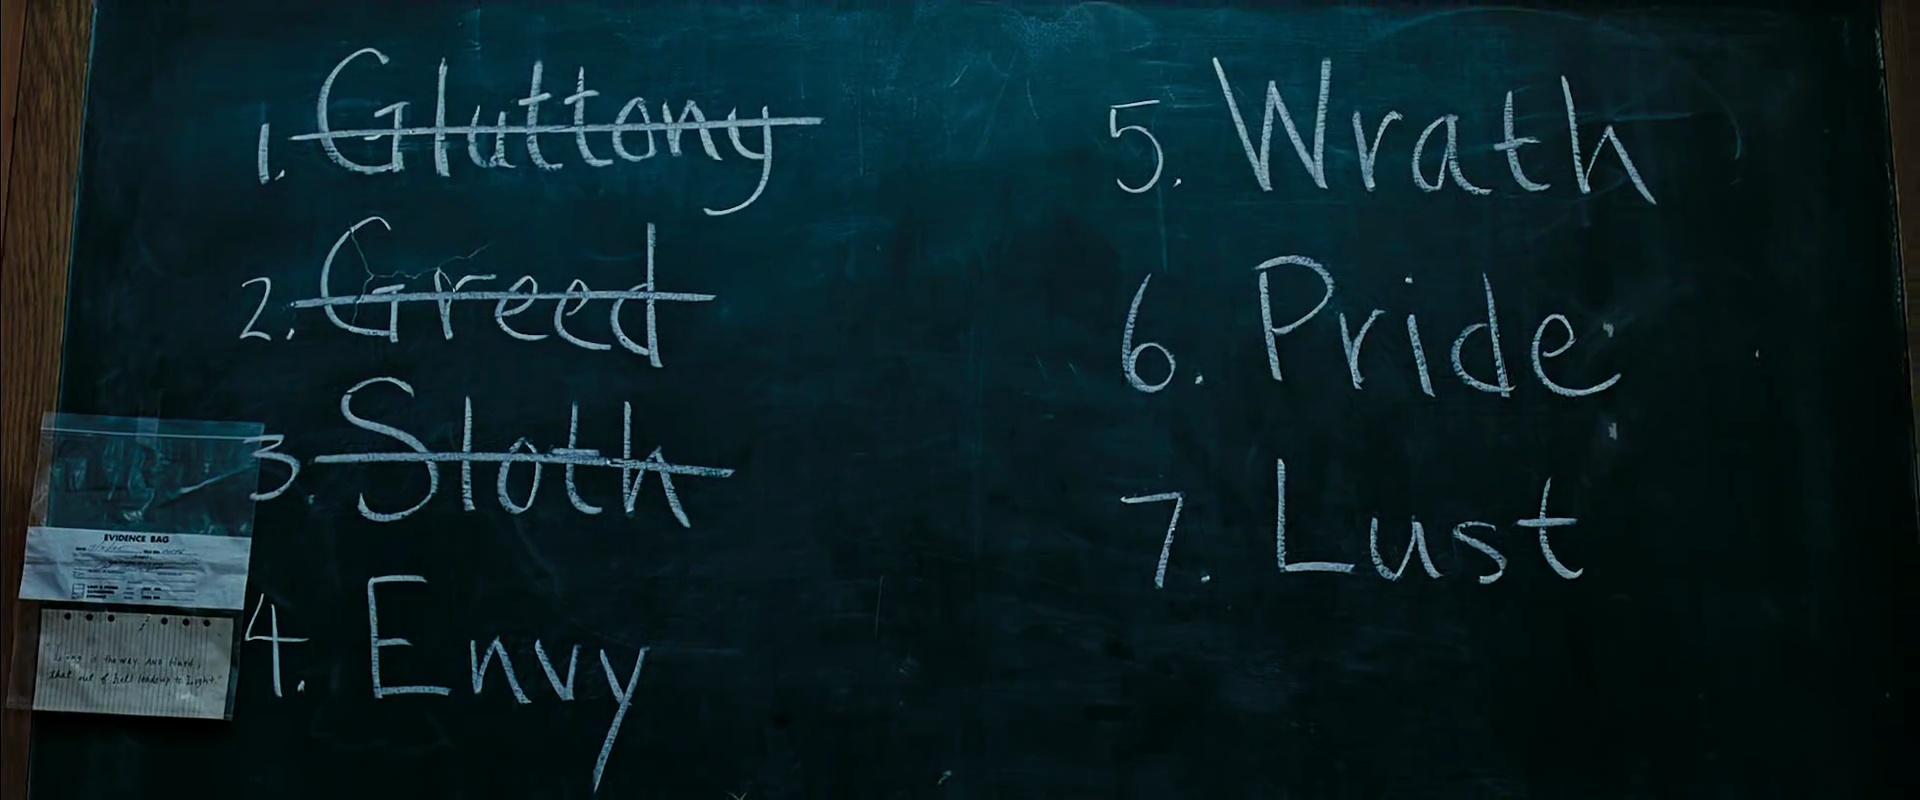 1. Gluttony
2. Greed
3. Sloth
4. Envy
5. Wrath
6. Pride
7. Lust
EVIDENCE BAG
"Long is the way, AND Hard,
that out of hell leads up to Light."